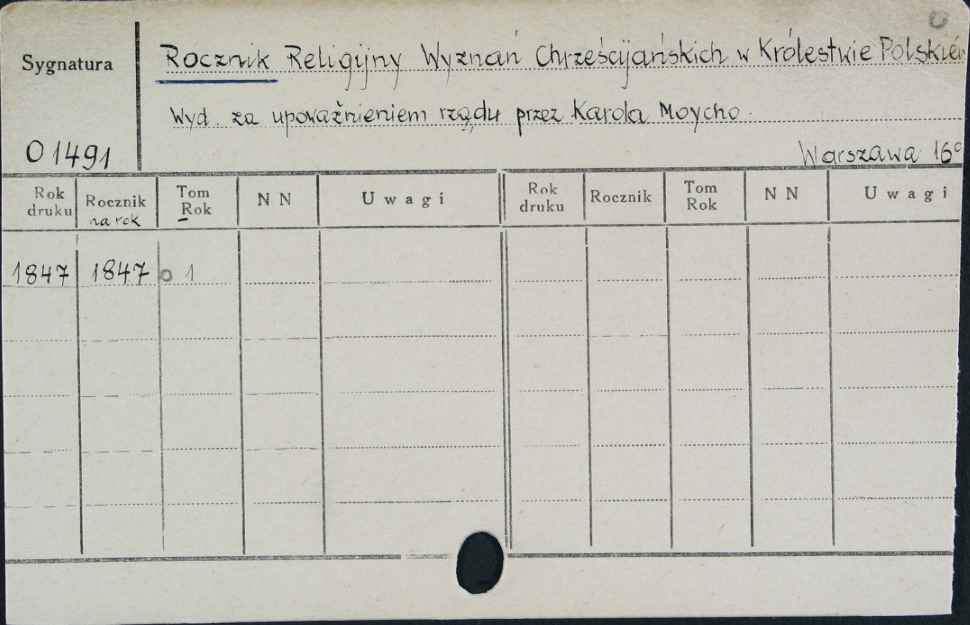 Sygnatura
Rocznik Religijny Wyznań Chrześcijańskich w Królestwie Polskiém
Wyd. za upoważnieniem rządu przez Karola Moycho.
O 1491
Warszawa 16°
Rok druku Rocznik na rok Tom Rok N N Uwagi Rok druku Rocznik Tom Rok N N Uwagi
1847 1847 o 1